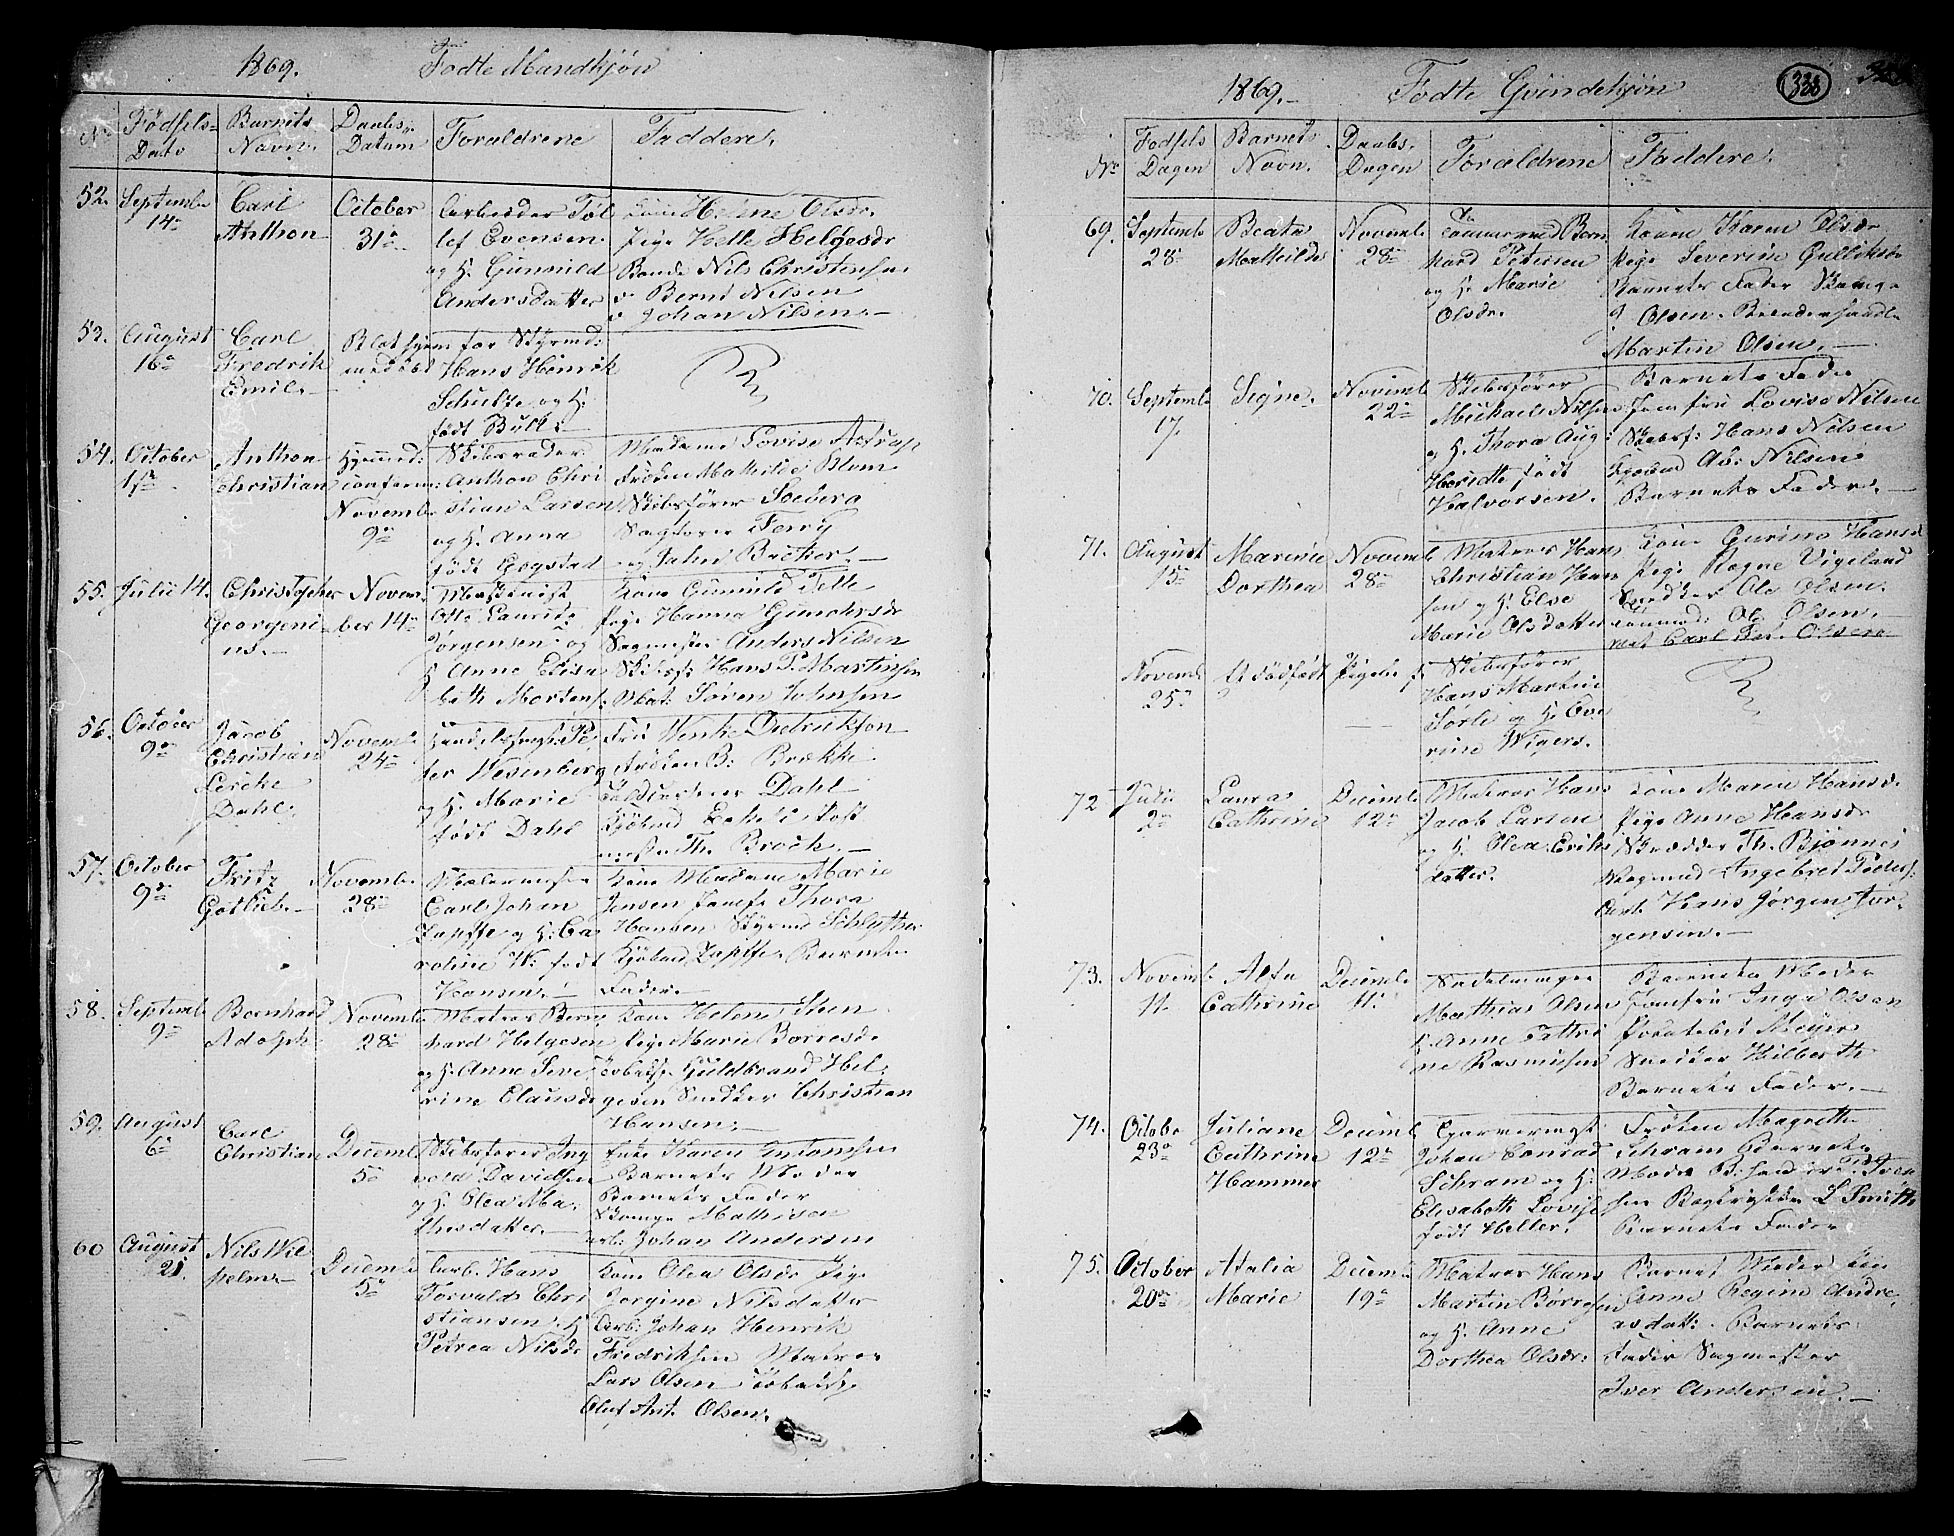 1869. Fødte Mandkjøn
No Fødsels- Dato Barnets Navn. Daabs- Datum Forældrene Faddere.
52. Septembr 14de Carl Anthon October 31te
Arbeider Tøl
lef Evensen
og H. Gunnild
Andersdatter
Kone Helene Olsdr.
Pige Helle Helgesdr
Bonde Nils Christensen
" Bernt Nilsen
" Johan Nilsen.
53. August 16de Carl Fredrik Emil.
for Styrmd:
Hans Henrik
Schultze og H.
født Bull.
54. October 1ste Anthon Christian
Hjemmed: confirm: Novembr 9de
Anthon Chri
stian Larsen
og H. Anna
født Gogstad
Madame Lovise
Frøken Mathilde Blom
Skibsfører Soeberg
Sagfører Ferry
og John Backer.
55. Julii 14. Christopher Georgeni us. Novem- ber 14de
Maskinist
Otto Laurits
Jørgensen og
H. Anne Elisa
beth Mortens.
Kone Gunnild Telle
Pige Hanna Gundersdr
Sagmester Anders Nilsen
Skibsf: Hans P. Martinsen
Mat: Søren Johnsen
56. October 9de Jacob Christian Lerche Dahl. Novembr 24de
Pe
ter Wesenberg
og H. Marie
født Dahl
Fru Wenke Dietrikson
Frøken B: Brække
Dahl
Kjøbmd Post
mester Th. Broch.
57. October 9de Fritz Gotlieb. Novembr 28de
Malermester
Carl Johan
Zapffe og H: Ca
roline W: født
Hansen.
Kone Madame Marie
Jensen Jomfr Thora
Hansen Styrmd Schlytter
Kjøbmd Zapffe, Barnets
Fader.
58. Septembr 9de Bernhard Adolph Novembr 28de
Matros Bern
hard Helgesen
og H. Anne Seve
rine Clausdr
Kone Helene Steen
Pige Marie Borresdr
Guldbrand Hel
gesen Snedker Christian
Hansen.
59. August 6te Carl Christian Decembr 5te
Skibsfører Ing
vold Davidsen
og H. Olea Ma
thisdatter.
Enke Karen Antonsen
Barnets Moder
Barnets Fader
Mathisen
arb: Johan Andersen
60 August 21. Nils Wil helm. Decembr 5te
Arb. Hans
Torvald Chri
stiansen. H
Petrea Nilsdr
Kone Olea Olsdr Pige
Jorgine Nilsdatter
Arb: Johan Henrik
Fredriksen Matros
Lars Olsen
Oluf Ant. Olsen.
1869. Fødte Qvindekjøn 338
No Fødsels Dagen Barnets Navn. Daabs- Dagen Forældrene Faddere.
69. Septembr 28de Beata Mathilde Novembr 28de
Tømmermd Bern
hard Petersen
og H. Marie
Olsdr.
Kone Karen Olsdr
Pige Severin Gulliksdr
Barnets Fader
Olsen.
Martin Olsen.
70. Septembr 17. Signe. Novembr 22de
Skibsfører
Michael Nilsen
og H. Thora Aug:
Henriette født
Halvorsen.
Barnets Fader
Jomfru Lovise Nilsen
Skibsf: Hans Nilsen
Kjøbmd Nilsen
Barnets Fader.
71. August 15de Marinie Dorthea Novembr 28de
Matros Hans
Christian Han
sen og H. Else
Marie Olsdatter
Kone Gurine Hansd
Pige Ragne Vigeland
Snedker Ole Olsen.
Tømmmd: Ole Olsen.
Mat Carl Fr. Olsen
Novembr 25de Et dødfødt Pigeb. f.
Skibsfører
Hans Martin
Sørlie og H. Eve
rine Wigers.
72 Julii 2de Laura Cathrine Decembr 12te
Matros Hans
Jacob Larsen
og H. Olea Eriks
datter.
Kone Maren Hansd.
Pige Anne Hansdr
Skrædder Th. Bjønnes
Angebret Peders.
Arb. Hans Jørgen Jør
gensen.
73. Novembr 11. Alfa Cathrine Decembr 11.
Sadelmager
Mathias Olsen
H. Anne Cathri
ne Rasmusen
Barnets Moder
Jomfru Inga Olsen
Meyer
Snedker Hilberth
Barnets Fader.
74. Octobr 23de Juliane Cathrine Hammer Decembr 12te
Garvermest
Johan Conrad
Schram og H.
Elisabeth Lovise
født Heller.
Frøken Magrethe
Schram Barnets
Moder
L Smith
Barnets Fader
75. October 20de Atalia Marie Decembr 19de
Matros Hans
Martin Børresen
og H. Anne
Dorthea Olsdr:
Barnets Moder
Anne Regine Andre
asdatt. Barnets
Fader Sagmester
Iver Andersen.